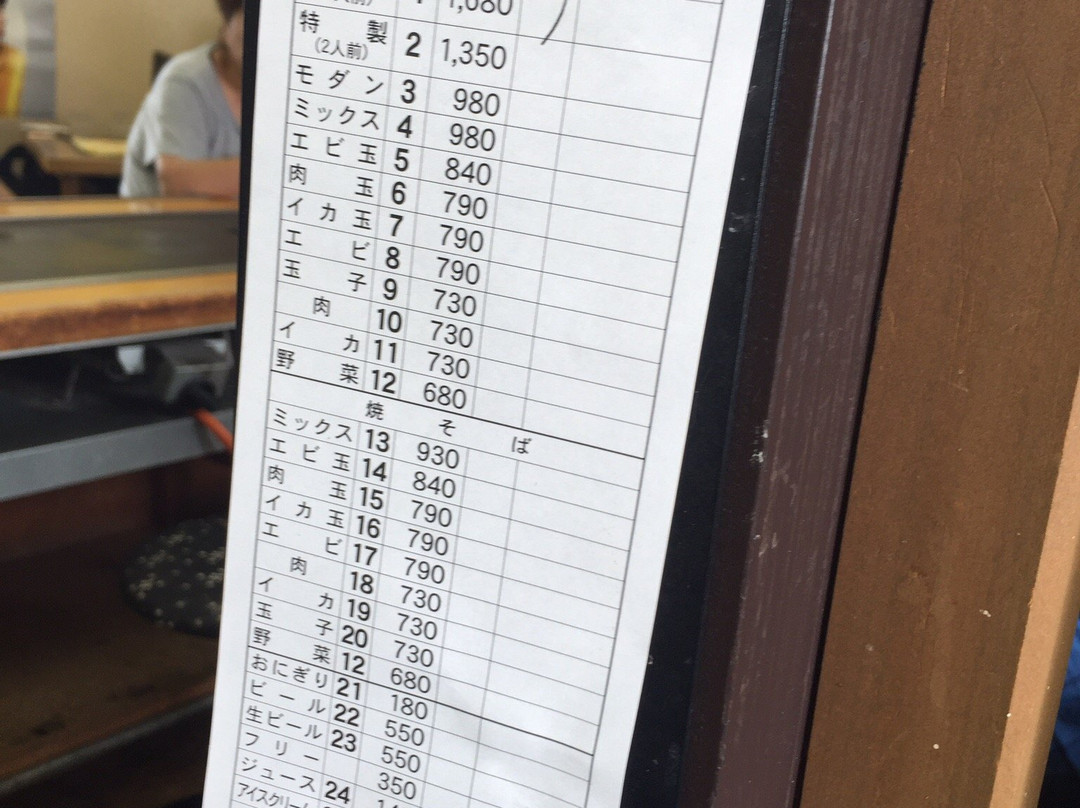 1,680
特製 2 1,350
(2人前)
モダン 3 980
ミックス 4 980
エビ玉 5 840
肉玉 6 790
イカ玉 7 790
エビ 8 790
玉子 9 730
肉 10 730
イカ 11 730
野菜 12 680
焼そば
ミックス 13 930
エビ玉 14 840
肉玉 15 790
イカ玉 16 790
エビ 17 790
肉 18 730
イカ 19 730
玉子 20 730
野菜 12 680
おにぎり 21 180
ビール 22 550
生ビール 23 550
フリー 350
ジュース 24
アイスクリーム